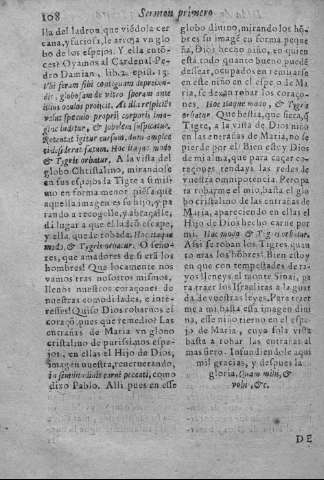 108 Sermon primero
lla del ladron, que viẽdola cer
cana, y furiosa, le arroja vn glo
bo de los espejos. Y ella entõ-
ces? Oyamos al Cardenal Pedro
Damian, lib. 2. epist. 13.
Vbi se
globum de vitro
illius oculos proijcit. At illa respicit
velut speculo proprij corporis ima-
ginẽ
igitur cursum,
Hoc itaque mo
do & Tigris orbatur. A la vista del
globo Christalino, mirandose
en sus espejos la Tigre a si mis-
mo en forma menor, piẽsa que
aquella imagen es su hijo, y pa
rando a recogelle, y abraçalle,
dà lugar a que el ladrõ escape,
y ella, quede robada. Hoc itaque
modo, & Tigris orbatur. O seño-
res, que amadores de si serà los
hombres! Que locamente nos
vamos tras nosotros mismos,
llenos nuestros coraçones de
nuestras comodidades, e inte-
resses! Quiso Dios robarnos el
coraçõ, pues que remedio? Las
entrañas de Maria vn globo
cristalino de purissimos espe-
jos, en ellas el Hijo de Dios,
imagen nuestra, encarnando,
in similitudinẽ carnis peccati, como
dixo Pablo. Alli pues en esse
globo divino, mirando los hõ-
bres su imagẽ en forma peque
ña, Dios hecho niño, en quien
està todo quanto bueno puede
dessear, ocupados en remirarse
en este niño en el espejo de Ma
ria, se dexan robar los coraço-
nes. Hoc itaque modo, & Tigris
orbatur. Que bestia, que fiera, q̃
Tigre, a la vista de Dios niño
en las entrañas de Maria, no se
pierde por el? Bien estoy Dios
de mi alma, que para caçar co-
raçones tendays las redes de
vuestra omnipotencia. Pero pa
ra robarme el mio, basta el glo
bo cristalino de las entrañas de
Maria, apareciendo en ellas el
Hijo de Dios hecho carne por
mi. Hoc modo & Tigris orbatur.
Assi se roban los Tigres, quan
to mas los hõbres? Bien estoy
en que con tempestades de ra-
yos lleneys el monte Sinai, pa
ra traer los Israelitas a la guar
da de vuestras leyes. Para traer
me a mi basta essa imagen dini
na, esse niño tierno en el espe-
jo de Maria, cuya sola vista
basta a robar las entrañas al
mas fiero. Infundiendole aqui
mil gracias, y despues la
gloria. Quam mihi, &
vobis, &c.
DE